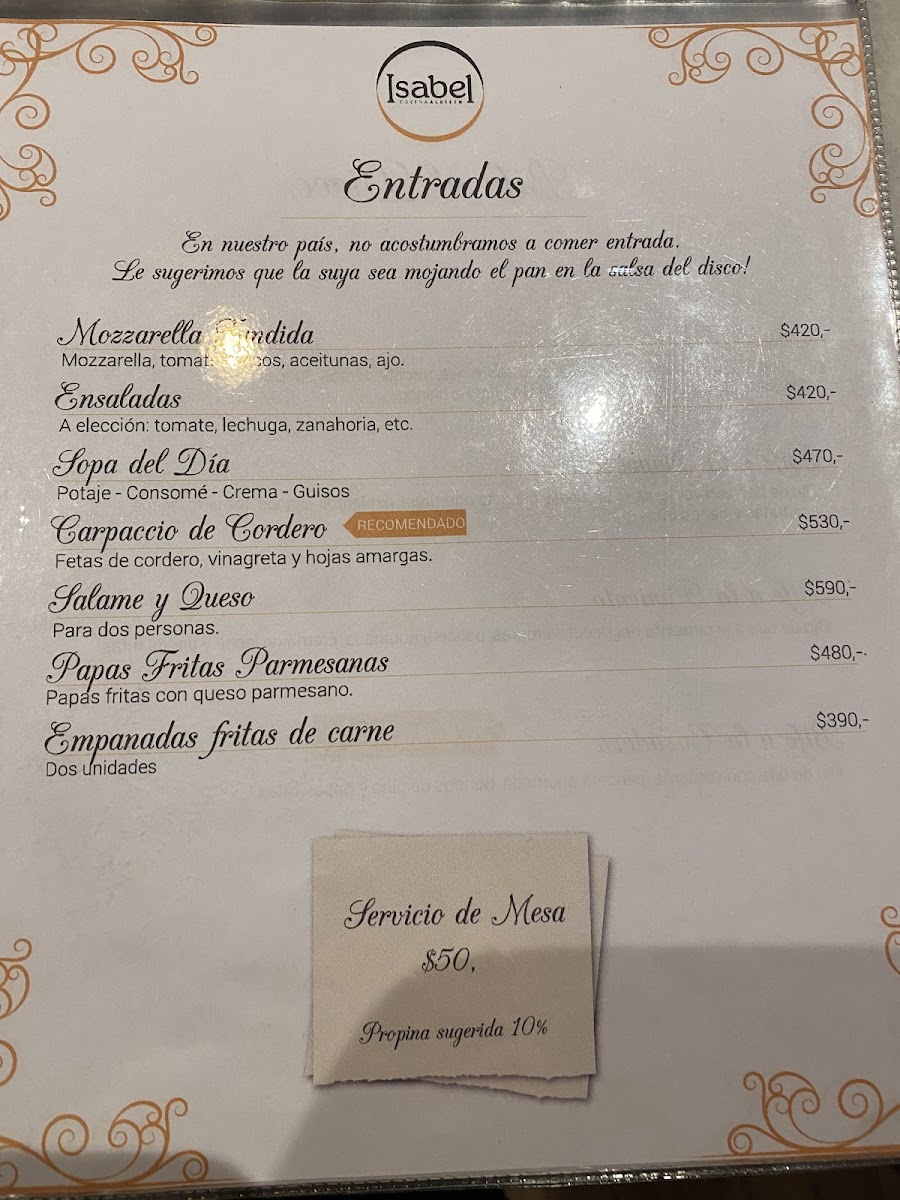 Isabel
COCINA AL DISCO
Entradas
En nuestro país, no acostumbramos a comer entrada.
Le sugerimos que la suya sea mojando el pan en la salsa del disco!
Mozzarella $420,-
Mozzarella, aceitunas, ajo.
Ensaladas $420,-
A elección: tomate, lechuga, zanahoria, etc.
Sopa del Día $470,-
Potaje - Consomé - Crema - Guisos
Carpaccio de Cordero RECOMENDADO $530,-
Fetas de cordero, vinagreta y hojas amargas.
Salame y Queso $590,-
Para dos personas.
Papas Fritas Parmesanas $480,-.
Papas fritas con queso parmesano.
Empanadas fritas de carne $390,-
Dos unidades
Servicio de Mesa
$50,
Propina sugerida 10%